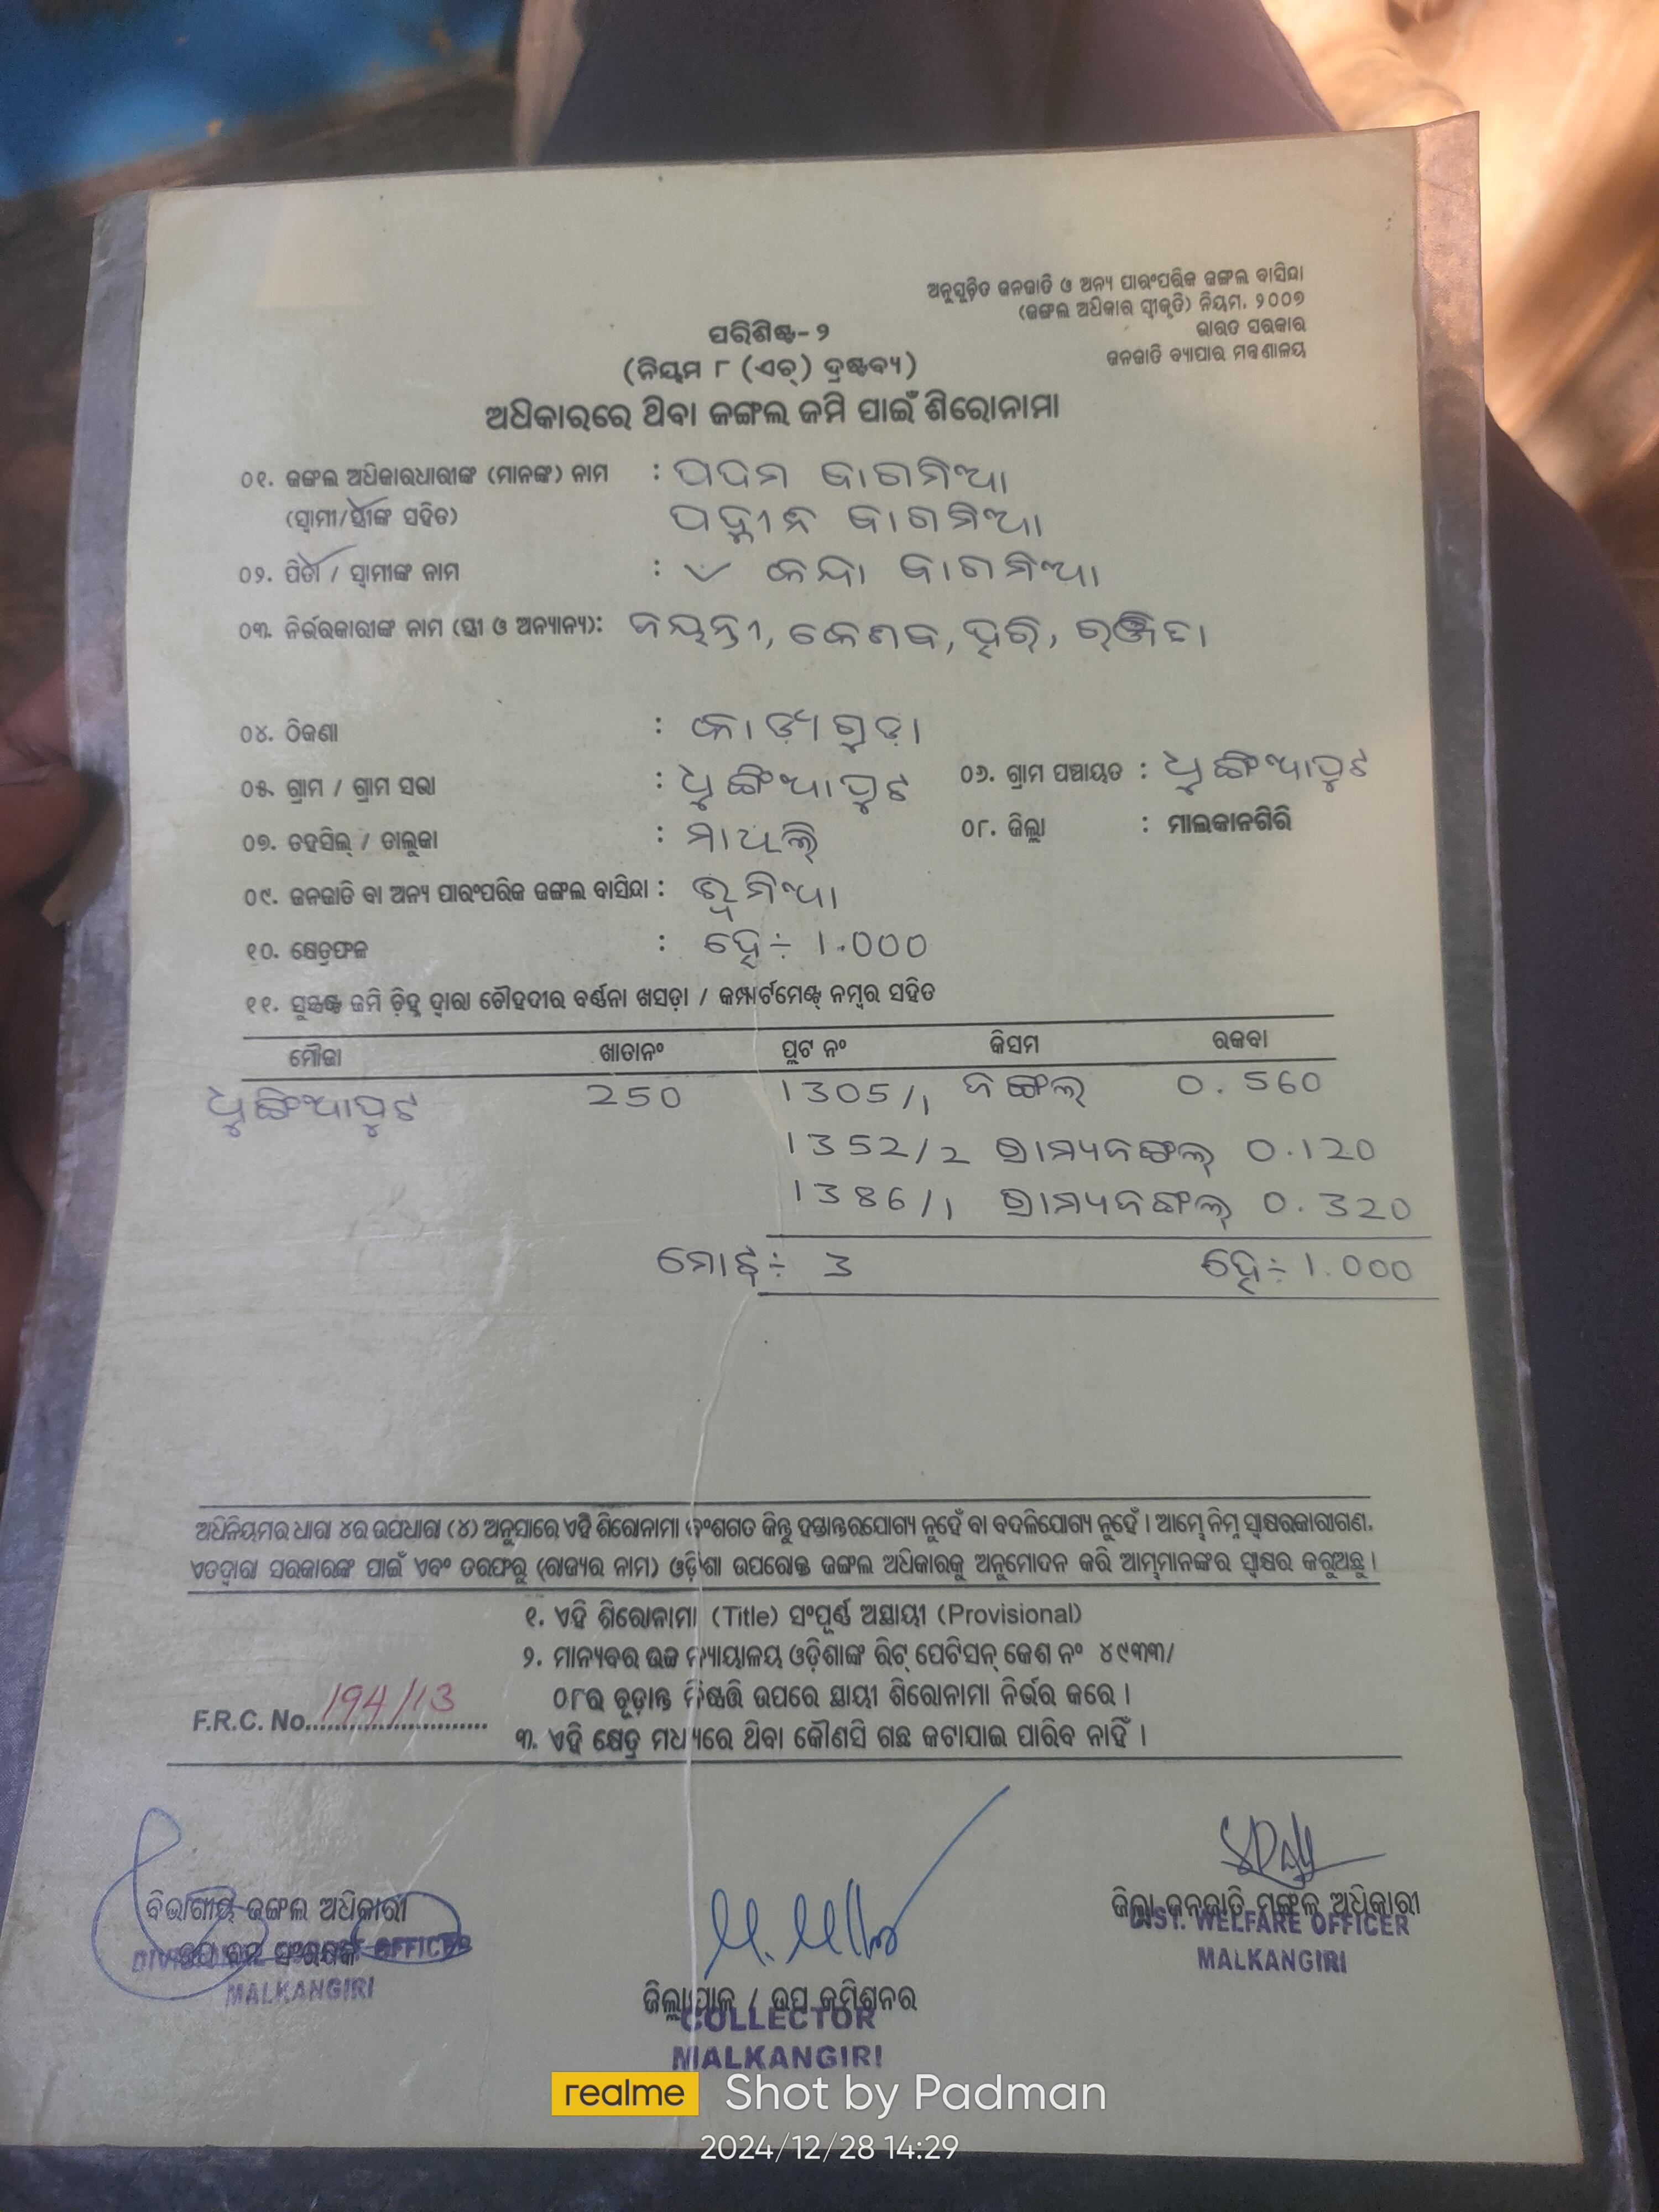 ଅନୁସୂଚିତ ଜନଜାତି ଓ ଅନ୍ୟ ପାରଂପରିକ ଜଙ୍ଗଲ ବାସିନ୍ଦା
(ଜଙ୍ଗଲ ଅଧିକାର ସ୍ୱୀକୃତି) ନିୟମ, ୨୦୦୭
ଭାରତ ସରକାର
ଜନଜାତି ବ୍ୟାପାର ମନ୍ତ୍ରଣାଳୟ
ପରିଶିଷ୍ଟ-୨
(ନିୟମ ୮ (ଏଚ୍) ଦ୍ରଷ୍ଟବ୍ୟ)
ଅଧିକାରରେ ଥିବା ଜଙ୍ଗଲ ଜମି ପାଇଁ ଶିରୋନାମା
୦୧. ଜଙ୍ଗଲ ଅଧିକାରଧାରୀଙ୍କ (ମାନଙ୍କ) ନାମ : ପଦମ ବାଗମିଆ
(ସ୍ୱାମୀ/ସ୍ତ୍ରୀଙ୍କ ସହିତ) ବାଗମିଆ
୦୨. ପିତା / ସ୍ୱାମୀଙ୍କ ନାମ : କେନ୍ଦା ବାଗମିଆ
୦୩. ନିର୍ଭରକାରୀଙ୍କ ନାମ (ସ୍ତ୍ରୀ ଓ ଅନ୍ୟାନ୍ୟ): ଜୟନ୍ତୀ, କେଶବ, ହରି,
୦୪. ଠିକଣା :
୦୫. ଗ୍ରାମ / ଗ୍ରାମ ସଭା : ଧୁଙ୍ଗିଆପୁଟ ୦୬. ଗ୍ରାମ ପଞ୍ଚାୟତ : ଧୁଙ୍ଗିଆପୁଟ
୦୭. ତହସିଲ୍ / ତାଲୁକା : ମାଥିଲି ୦୮. ଜିଲ୍ଲା : ମାଲକାନଗିରି
୦୯. ଜନଜାତି ବା ଅନ୍ୟ ପାରଂପରିକ ଜଙ୍ଗଲ ବାସିନ୍ଦା : ଭୂମିଆ
୧୦. କ୍ଷେତ୍ରଫଳ : ହେ÷ 1.000
୧୧. ସୁସ୍ପଷ୍ଟ ଜମି ଚିହ୍ନ ଦ୍ୱାରା ଚୌହଦୀର ବର୍ଣ୍ଣନା ଖସଡ଼ା / କମ୍ପାର୍ଟମେଣ୍ଟ୍ ନମ୍ବର ସହିତ
ମୌଜା ଖାତାନଂ ପ୍ଲଟ ନଂ କିସମ ରକବା
ଧୁଙ୍ଗିଆପୁଟ 250 1305/1 ଜଙ୍ଗଲ 0.560
1352/2 ଗ୍ରାମ୍ୟଜଙ୍ଗଲ 0.120
1386/1 ଗ୍ରାମ୍ୟଜଙ୍ଗଲ 0.320
ମୋଟ÷ 3 ହେ÷ 1.000
ଅଧିନିୟମର ଧାରା ୪ର ଉପଧାରା (୪) ଅନୁସାରେ ଏହି ଶିରୋନାମା ବଂଶଗତ କିନ୍ତୁ ହସ୍ତାନ୍ତରଯୋଗ୍ୟ ନୁହେଁ ବା ବଦଳିଯୋଗ୍ୟ ନୁହେଁ । ଆମ୍ଭେ ନିମ୍ନ ସ୍ୱାକ୍ଷରକାରୀଗଣ,
ଏତଦ୍ୱାରା ସରକାରଙ୍କ ପାଇଁ ଏବଂ ତରଫରୁ (ରାଜ୍ୟର ନାମ) ଓଡ଼ିଶା ଉପରୋକ୍ତ ଜଙ୍ଗଲ ଅଧିକାରକୁ ଅନୁମୋଦନ କରି ଆମ୍ଭମାନଙ୍କର ସ୍ୱାକ୍ଷର କରୁଅଛୁ ।
୧. ଏହି ଶିରୋନାମା (Title) ସଂପୂର୍ଣ୍ଣ ଅସ୍ଥାୟୀ (Provisional)
୨. ମାନ୍ୟବର ଉଚ୍ଚ ନ୍ୟାୟାଳୟ ଓଡ଼ିଶାଙ୍କ ରିଟ୍ ପେଟିସନ୍ କେଶ ନଂ ୪୯୩୩/
୦୮ର ଚୂଡ଼ାନ୍ତ ନିଷ୍ପତ୍ତି ଉପରେ ସ୍ଥାୟୀ ଶିରୋନାମା ନିର୍ଭର କରେ ।
F.R.C. No. 194/13
୩. ଏହି କ୍ଷେତ୍ର ମଧ୍ୟରେ ଥିବା କୌଣସି ଗଛ କଟାଯାଇ ପାରିବ ନାହିଁ ।
ବିଭାଗୀୟ ଜଙ୍ଗଲ ଅଧିକାରୀ
ଉପ ବନ ସଂରକ୍ଷକ
OFFICER
MALKANGIRI
ଜିଲ୍ଲାପାଳ / ଉପ କମିଶନର
COLLECTOR
MALKANGIRI
ଜିଲ୍ଲା ଜନଜାତି ମଙ୍ଗଳ ଅଧିକାରୀ
DIST. WELFARE OFFICER
MALKANGIRI
realme Shot by Padman
2024/12/28 14:29